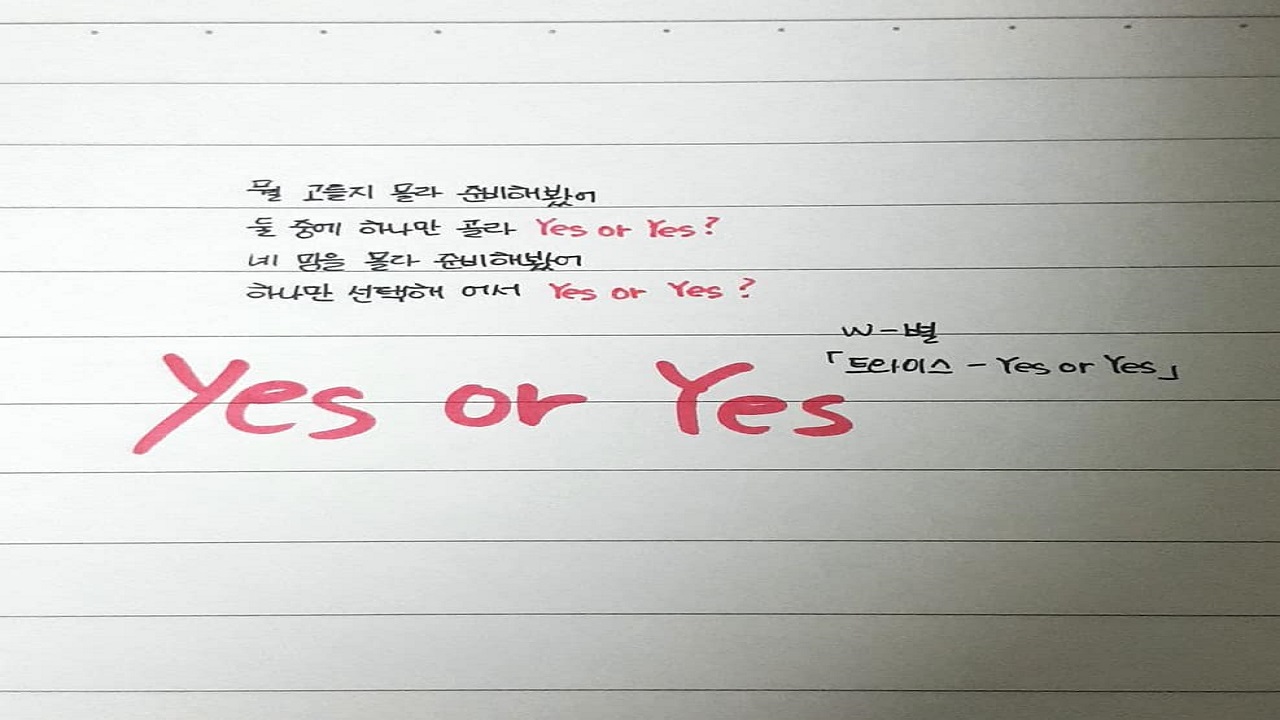 뭘 고를지 몰라 준비해봤어
둘 중에 하나만 골라 Yes or Yes?
네 맘을 몰라 준비해봤어
하나만 선택해 어서 Yes or Yes?
W-별
「트라이스 - Yes or Yes」
Yes or Yes